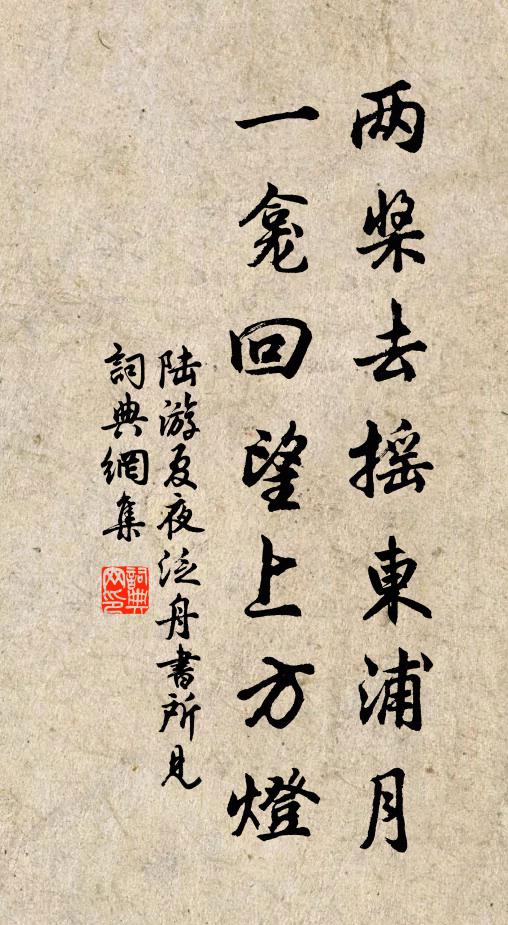 两桨去摇東浦月
一龛回望上方燈
陆游夏夜泛舟書所見
詞典網集
詞典
网印